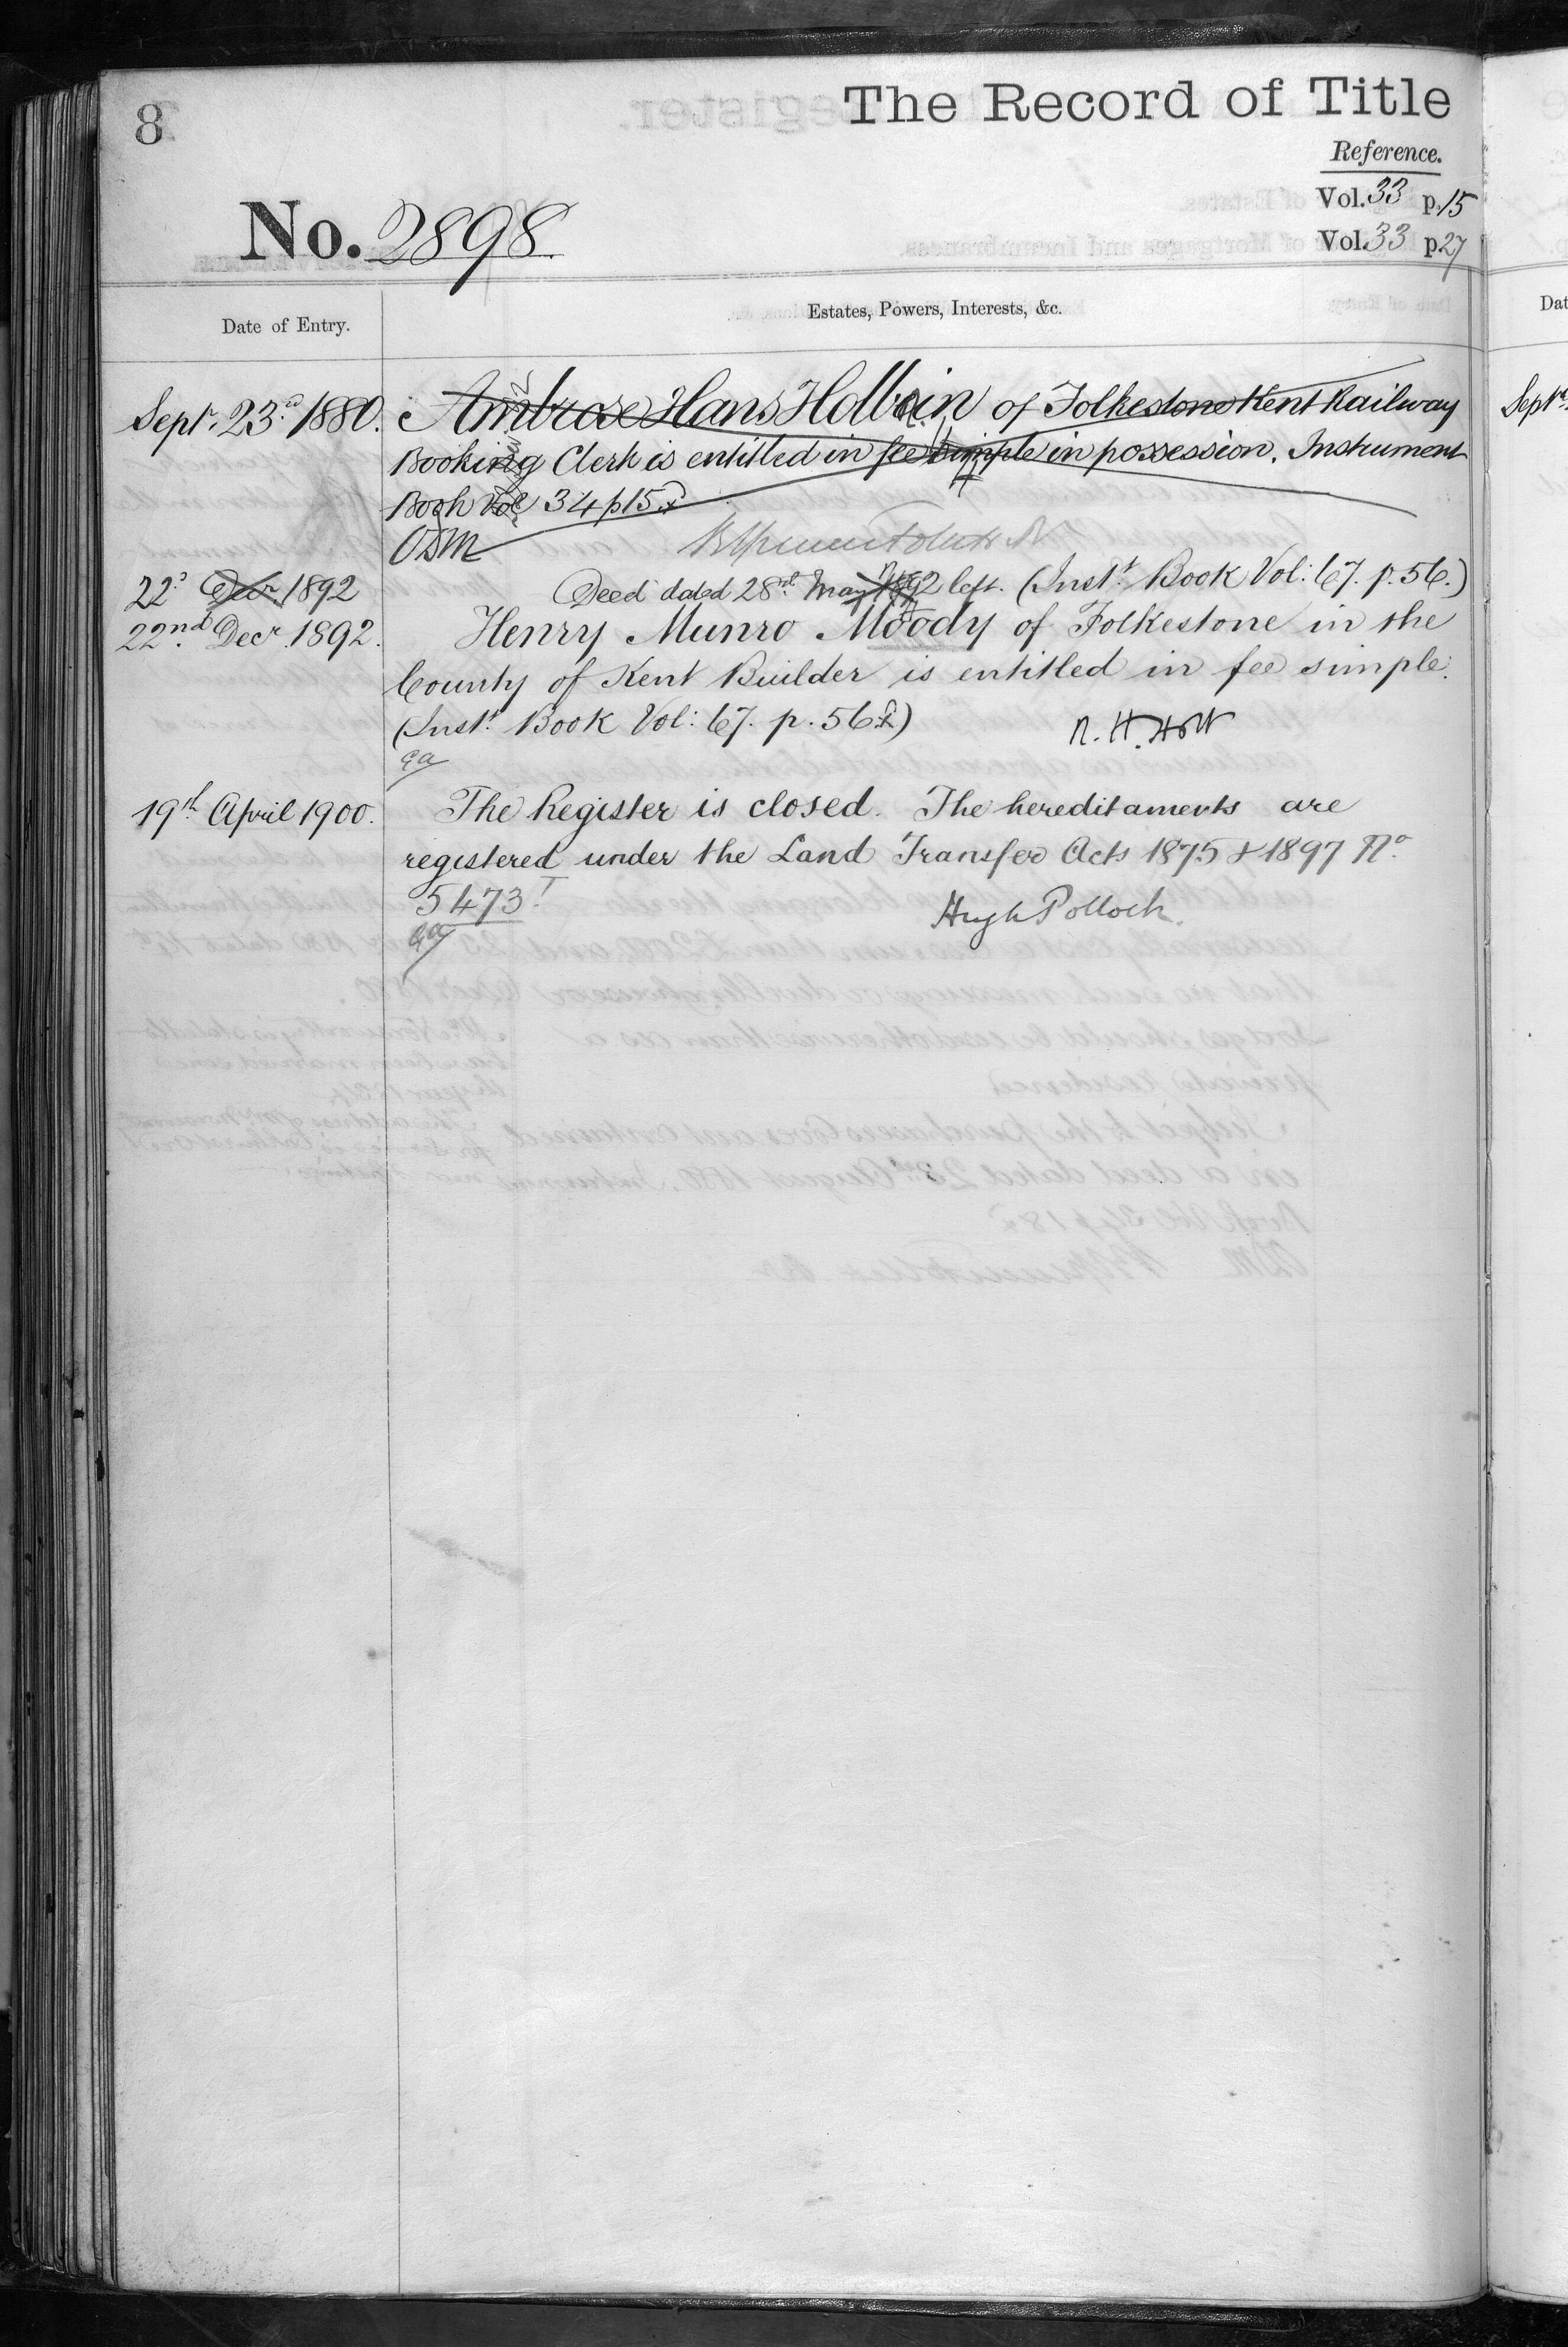 8
The Record of Title
Reference.
Vol. 33 p. 15
No. 2898.
Vol. 33 p 27
Date of Entry.
Estates, Powers, Interests, &c.
Dat
Septr. 23rd 1880.
Ambrose Hans Holbein of Folkestone Kent Railway
Booking Clerk is entitled in fee simple in possession. Instrument
Book Vol 34 p 15
22d Decr. 1892
Deed dated 28th May 1892 left. (Instt. Book Vol: 67. p. 56.)
22nd. Decr. 1892.
Henry Munro Moody of Folkestone in the
County of Kent Builder is entitled in fee simple.
(Instt. Book Vol: 67. p. 56)
R. H. Holt
19th April 1900.
The Register is closed. The hereditaments are
registered under the Land Transfer Acts 1875 & 1897 No.
5473.
Hugh Pollock.